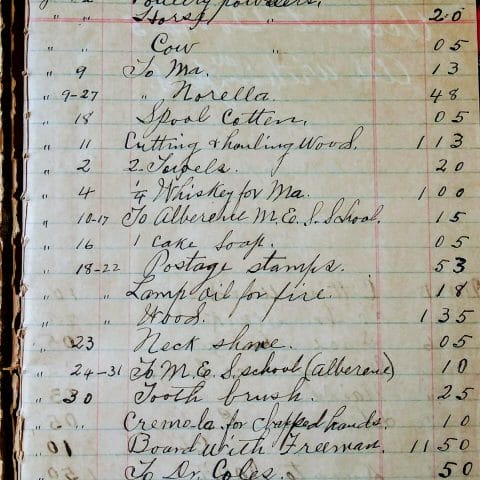 " 12 Poultry powders.
" Horse, " 2 0
" " Cow " 0 5
" 9 To Ma. 1 3
" 9-27 " Norella 4 8
" 18 Spool Cotten. 0 5
" 11 Cutting & hauling Wood. 1 1 3
" 2 2 Towels. 2 0
" 4 ¼ Whiskey for Ma. 1 0 0
" 10-17 To Alberene M. E. S. School. 1 5
" 16 1 cake Soap. 0 5
" 18-22 Postage stamps. 5 3
" " Lamp oil for fire. 1 8
" " Wood. 1 3 5
" 23 Neck shave. 0 5
" 24-31 To M. E. S. school (Alberene) 1 0
" 30 Tooth brush. 2 5
" " Cremela for chapped hands. 1 0
" 01 Board with Freeman. 11 5 0
" To Dr Coles. 5 0